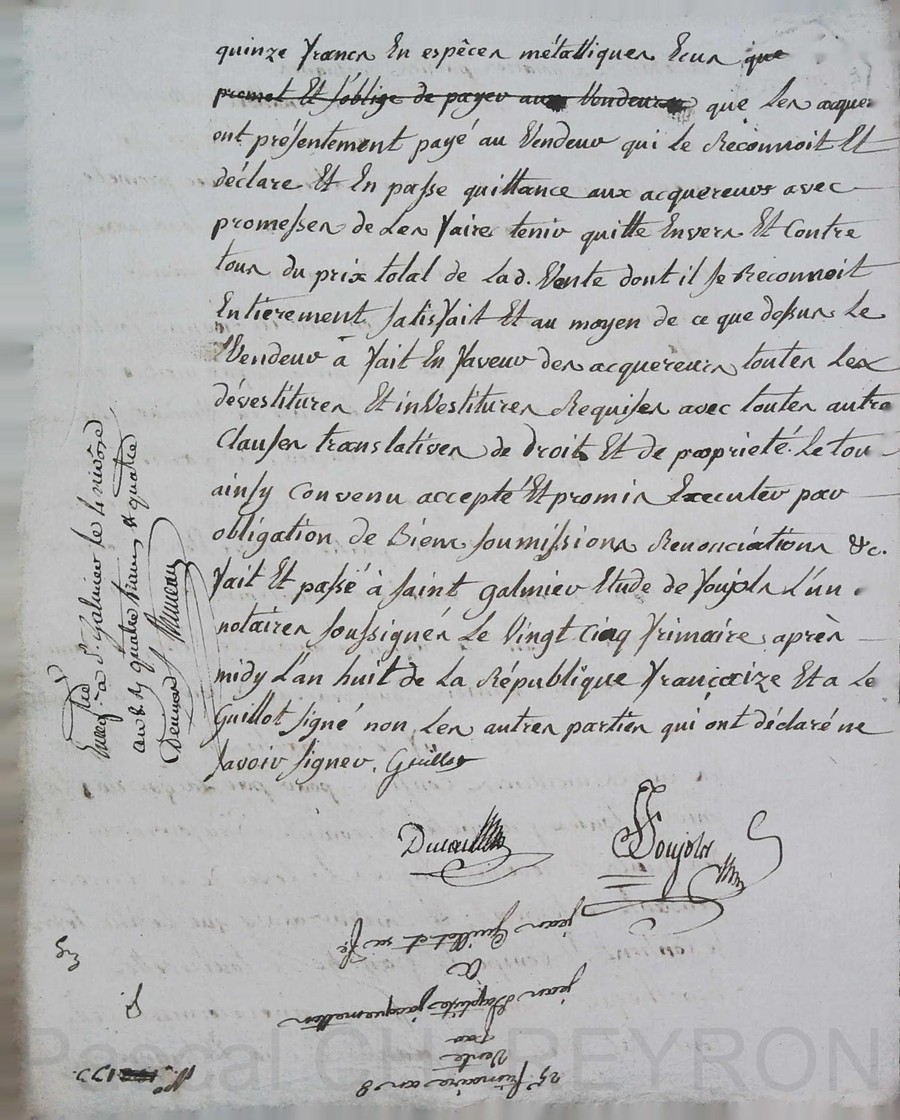 quinze francs En espèces métalliques Ecus que
promet Et s'oblige de payer aux Vendeurs que Les acque
ont présentement payé au Vendeur qui Le Reconnoit Et
déclare Et En passe quittance aux acquereurs avec
promesses de Les faire tenir quitte Envers Et Contre
tous du prix total de Lad. Vente dont il se Reconnoit
Entièrement satisfait Et au moyen de ce que dessus Le
Vendeur à fait En faveur des acquereurs toutes Les
dévestitures Et inVestitures Requises avec toutes autre
Clauses translatives de droit Et de proprieté. Le tou
ainsy Convenu accepté Et promis Executer par
obligation de Biens soumissions Renonciations &c.
fait Et passé à saint galmier Etude de foujols L'un
notaires soussignés Le Vingt Cinq frimaire après
midy L'an huit de La République françaize Et a Le
Guillot signé non Les autres parties qui ont déclaré ne
savoir signer. Guillot
Ducoin
foujols
à St. Galmier le 4 nivôse
an 8. R quatre francs & quatre
jean Guillot et sa fe.
a
jean Baptiste jacquemetton
par
Vente
25 frimaire an 8